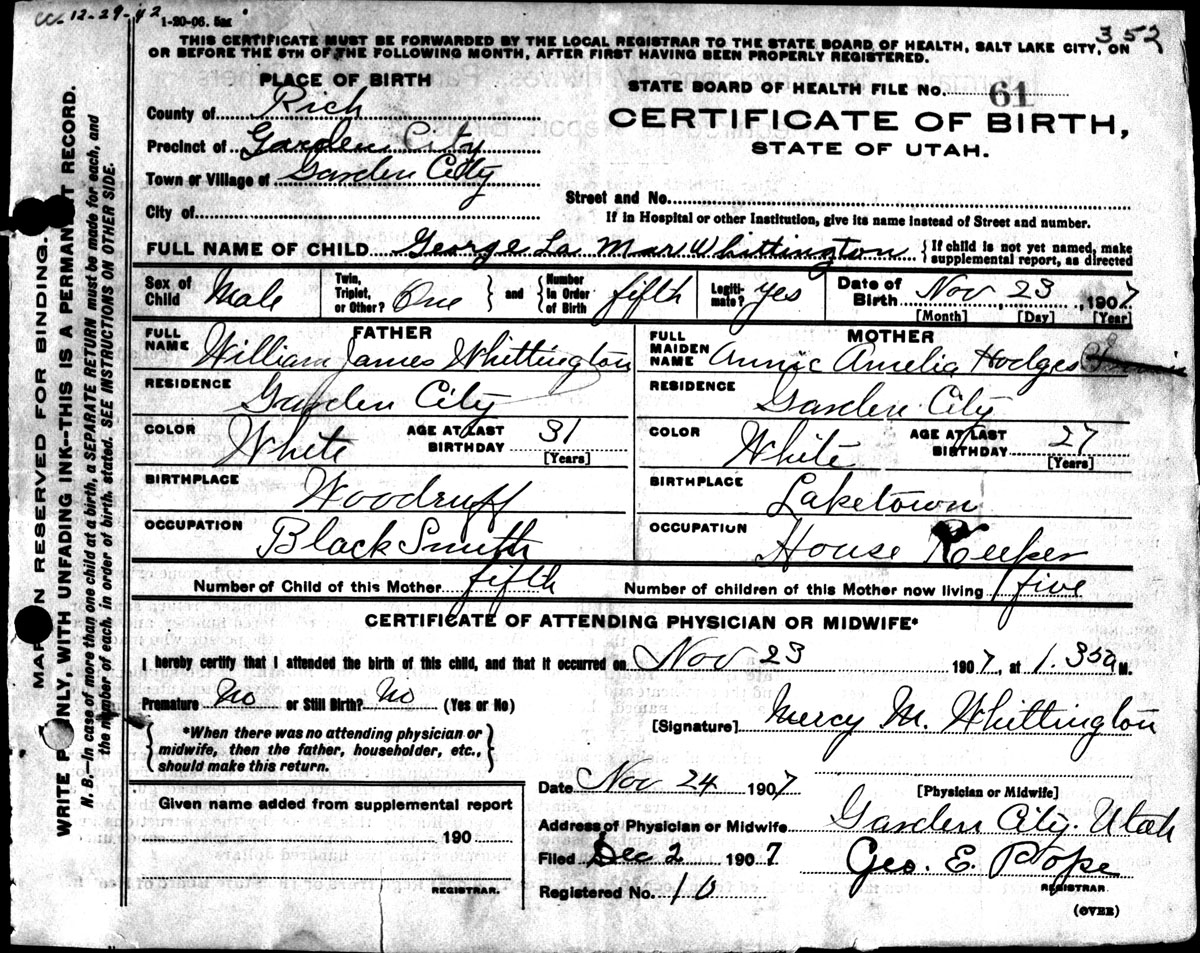 cc 12-29-42
1-20-06. 5M
352
THIS CERTIFICATE MUST BE FORWARDED BY THE LOCAL REGISTRAR TO THE STATE BOARD OF HEALTH, SALT LAKE CITY, ON
OR BEFORE THE 5TH OF THE FOLLOWING MONTH, AFTER FIRST HAVING BEEN PROPERLY REGISTERED.
PLACE OF BIRTH
County of Rich
Precinct of Garden City
Town or Village of Garden City
City of
STATE BOARD OF HEALTH FILE NO. 61
CERTIFICATE OF BIRTH,
STATE OF UTAH.
Street and No.
If in Hospital or other Institution, give its name instead of Street and number.
FULL NAME OF CHILD George La Mar Whittington { If child is not yet named, make
supplemental report, as directed
Sex of Child Male Twin, Triplet, or Other? One } and { Number in Order of Birth fifth Legiti-mate? yes Date of Birth Nov 23, 1907
[Month] [Day] [Year]
FATHER
FULL NAME William James Whittington
RESIDENCE Garden City
COLOR White AGE AT LAST BIRTHDAY 31
[Years]
BIRTHPLACE Woodruff
OCCUPATION Black Smith
MOTHER
FULL MAIDEN NAME Annie Amelia Hodges
RESIDENCE Garden City
COLOR White AGE AT LAST BIRTHDAY 27
[Years]
BIRTHPLACE Laketown
OCCUPATION House Keeper
Number of Child of this Mother fifth Number of children of this Mother now living five
CERTIFICATE OF ATTENDING PHYSICIAN OR MIDWIFE*
I hereby certify that I attended the birth of this child, and that it occurred on Nov 23 1907, at 1.35 a M.
Premature no or Still Birth? no (Yes or No)
{ *When there was no attending physician or
midwife, then the father, householder, etc.,
should make this return. }
[Signature] Mercy M. Whittington
Date Nov 24 1907
[Physician or Midwife]
Address of Physician or Midwife Garden City. Utah
Filed Dec 2 1907 Geo. E. Pope
REGISTRAR.
Registered No. 10
(OVER)
Given name added from supplemental report
190
REGISTRAR.
MARGIN RESERVED FOR BINDING.
WRITE PLAINLY, WITH UNFADING INK--THIS IS A PERMANENT RECORD.
N. B.—In case of more than one child at a birth, a SEPARATE RETURN must be made for each, and
the number of each, in order of birth, stated. SEE INSTRUCTIONS ON OTHER SIDE.